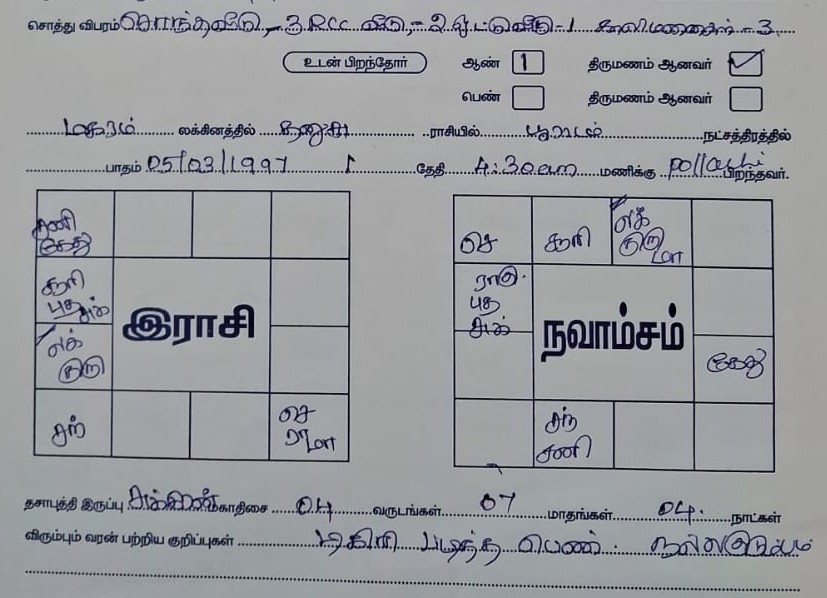 சொத்து விபரம் சொந்தவீடு - 3 RCC வீடு, - 2 ஓட்டுவீடு - 1 காலிமனைகள் - 3
உடன் பிறந்தோர் ஆண் 1 திருமணம் ஆனவர் ✓
பெண் திருமணம் ஆனவர்
மகரம் லக்கினத்தில் தனுசு ராசியில் பூராடம் நட்சத்திரத்தில்
பாதம் 05/03/1997 தேதி 4:30am மணிக்கு pollachi பிறந்தவர்.
சனி
கேது
சூரி
புத
சுக்
லக்
குரு
இராசி
சந்
செ
ரா
மா
செ
சூரி
லக்
குரு
மா
ராகு
புத
சுக்
நவாம்சம்
கேது
சந்
சனி
தசாபுத்தி இருப்பு சுக்கிரன் மகாதிசை 04 வருடங்கள் 07 மாதங்கள் 04 நாட்கள்
விரும்பும் வரன் பற்றிய குறிப்புகள் டிகிரி படித்த பெண். நல்லகுடும்பம்